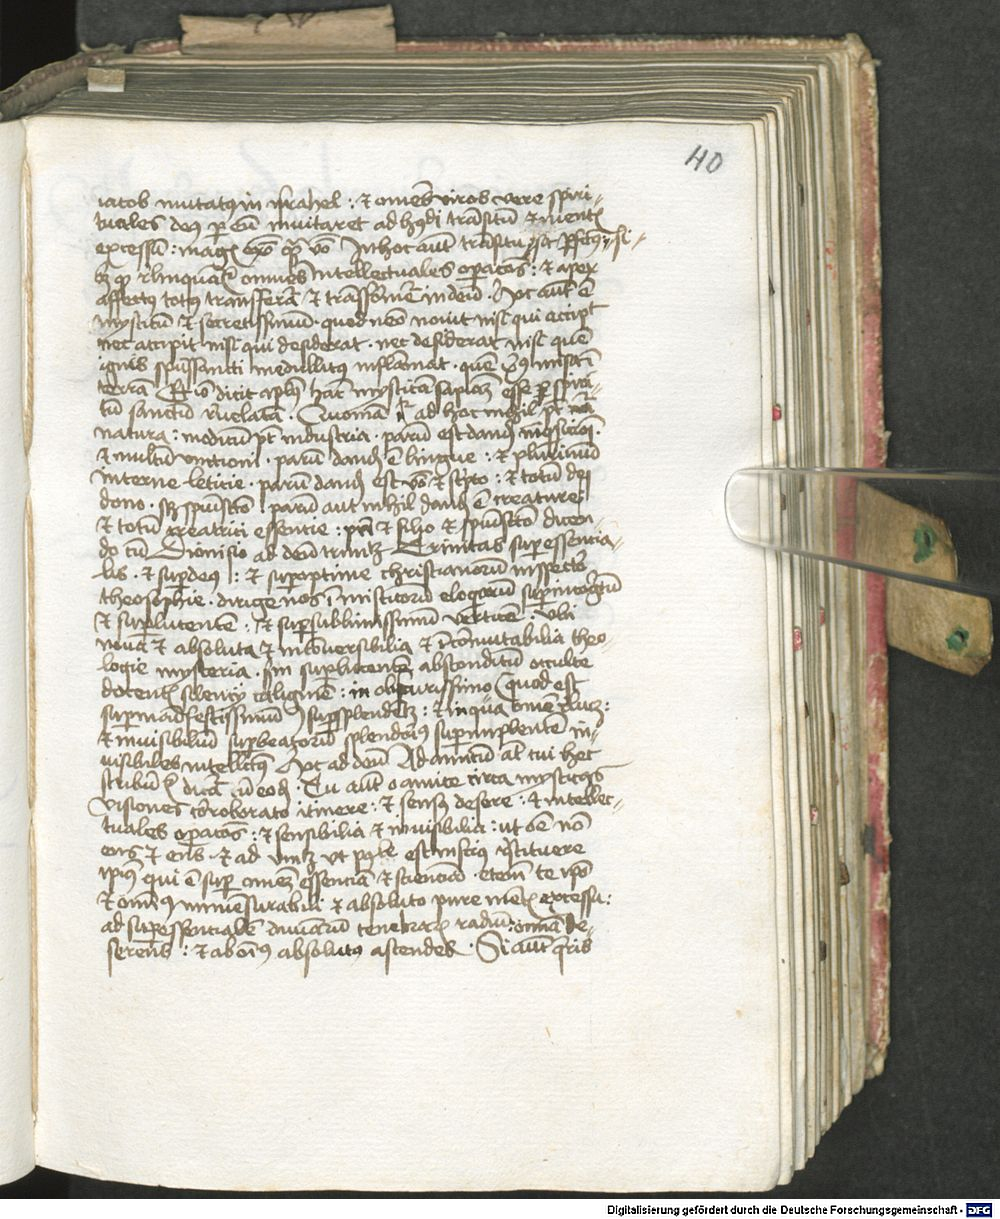 40
iacob mutatus in israhel : et omnes viros vere spiri-
tuales deus per eum invitaret ad huiusmodi transitum et mentis
excessum : magis exemplo quam verbo In hoc autem transitu si sit perfectus
oportet quod relinquantur omnes intellectuales operaciones : et apex
affectus totus transferatur et transformetur in deum . Hoc autem est
mysticum et secretissimum . quod nemo novit nisi qui accipit
nec accipit nisi qui desiderat . nec desiderat nisi quem
ignis spiritus sancti medullitus inflammat . quem christus misit in
terram Et ideo dicit apostolus hanc mysticam sapienciam esse per spiri-
tum sanctum revelatam . Quoniam igitur ad hoc nichil potest
natura : modicum potest industria . parum est dandum inquisicioni
et multum unctioni . parum dandum est lingue : et plurimum
interne leticie . parum dandum est verbo et scripto : et totum dei
dono . scilicet spiritui sancto parum aut nihil dandum est creature
et totum creatrici essentie : patri et filio et spiritui sancto dicen-
do cum Dionisio ad deum trinitatem Trinitas superessencia-
lis . et superdeus : et superoptime christianorum inspector
theosophie . dirige nos in misticorum eloquiorum superincognitum
et superlucentem : et supersublimissimum verticem : ubi
nova et absoluta et inconversibilia et incommutabilia theo-
logie mysteria . secundum superlucentem absconditum occulte
docentis silencij caliginem : in obscurissimo quod est
supermanifestissimum supersplendentem : et in qua omne relucet :
et invisibilium superbonorum splendoribus superimplentem in-
visibiles intellectus Hoc ad deum Ad amicum autem cui hec
scribuntur dicatur cum eodem . Tu autem o amice circa mysticas
visiones corroborato itinere : et sensus desere : et intellec-
tuales operaciones : et sensibilia et invisibilia : et omne non
ens et ens . et ad unitatem ut possibile est inscius restituere
ipsius qui est super omnem essenciam et scienciam . etenim te ipso
et omnibus immensurabili et absoluto pure mentis excessu :
ad superessentialem divinarum tenebrarum radium : omnia de-
serens : et ab omnibus absolutus ascendes . Si autem queris
Digitalisierung gefördert durch die Deutsche Forschungsgemeinschaft - DFG